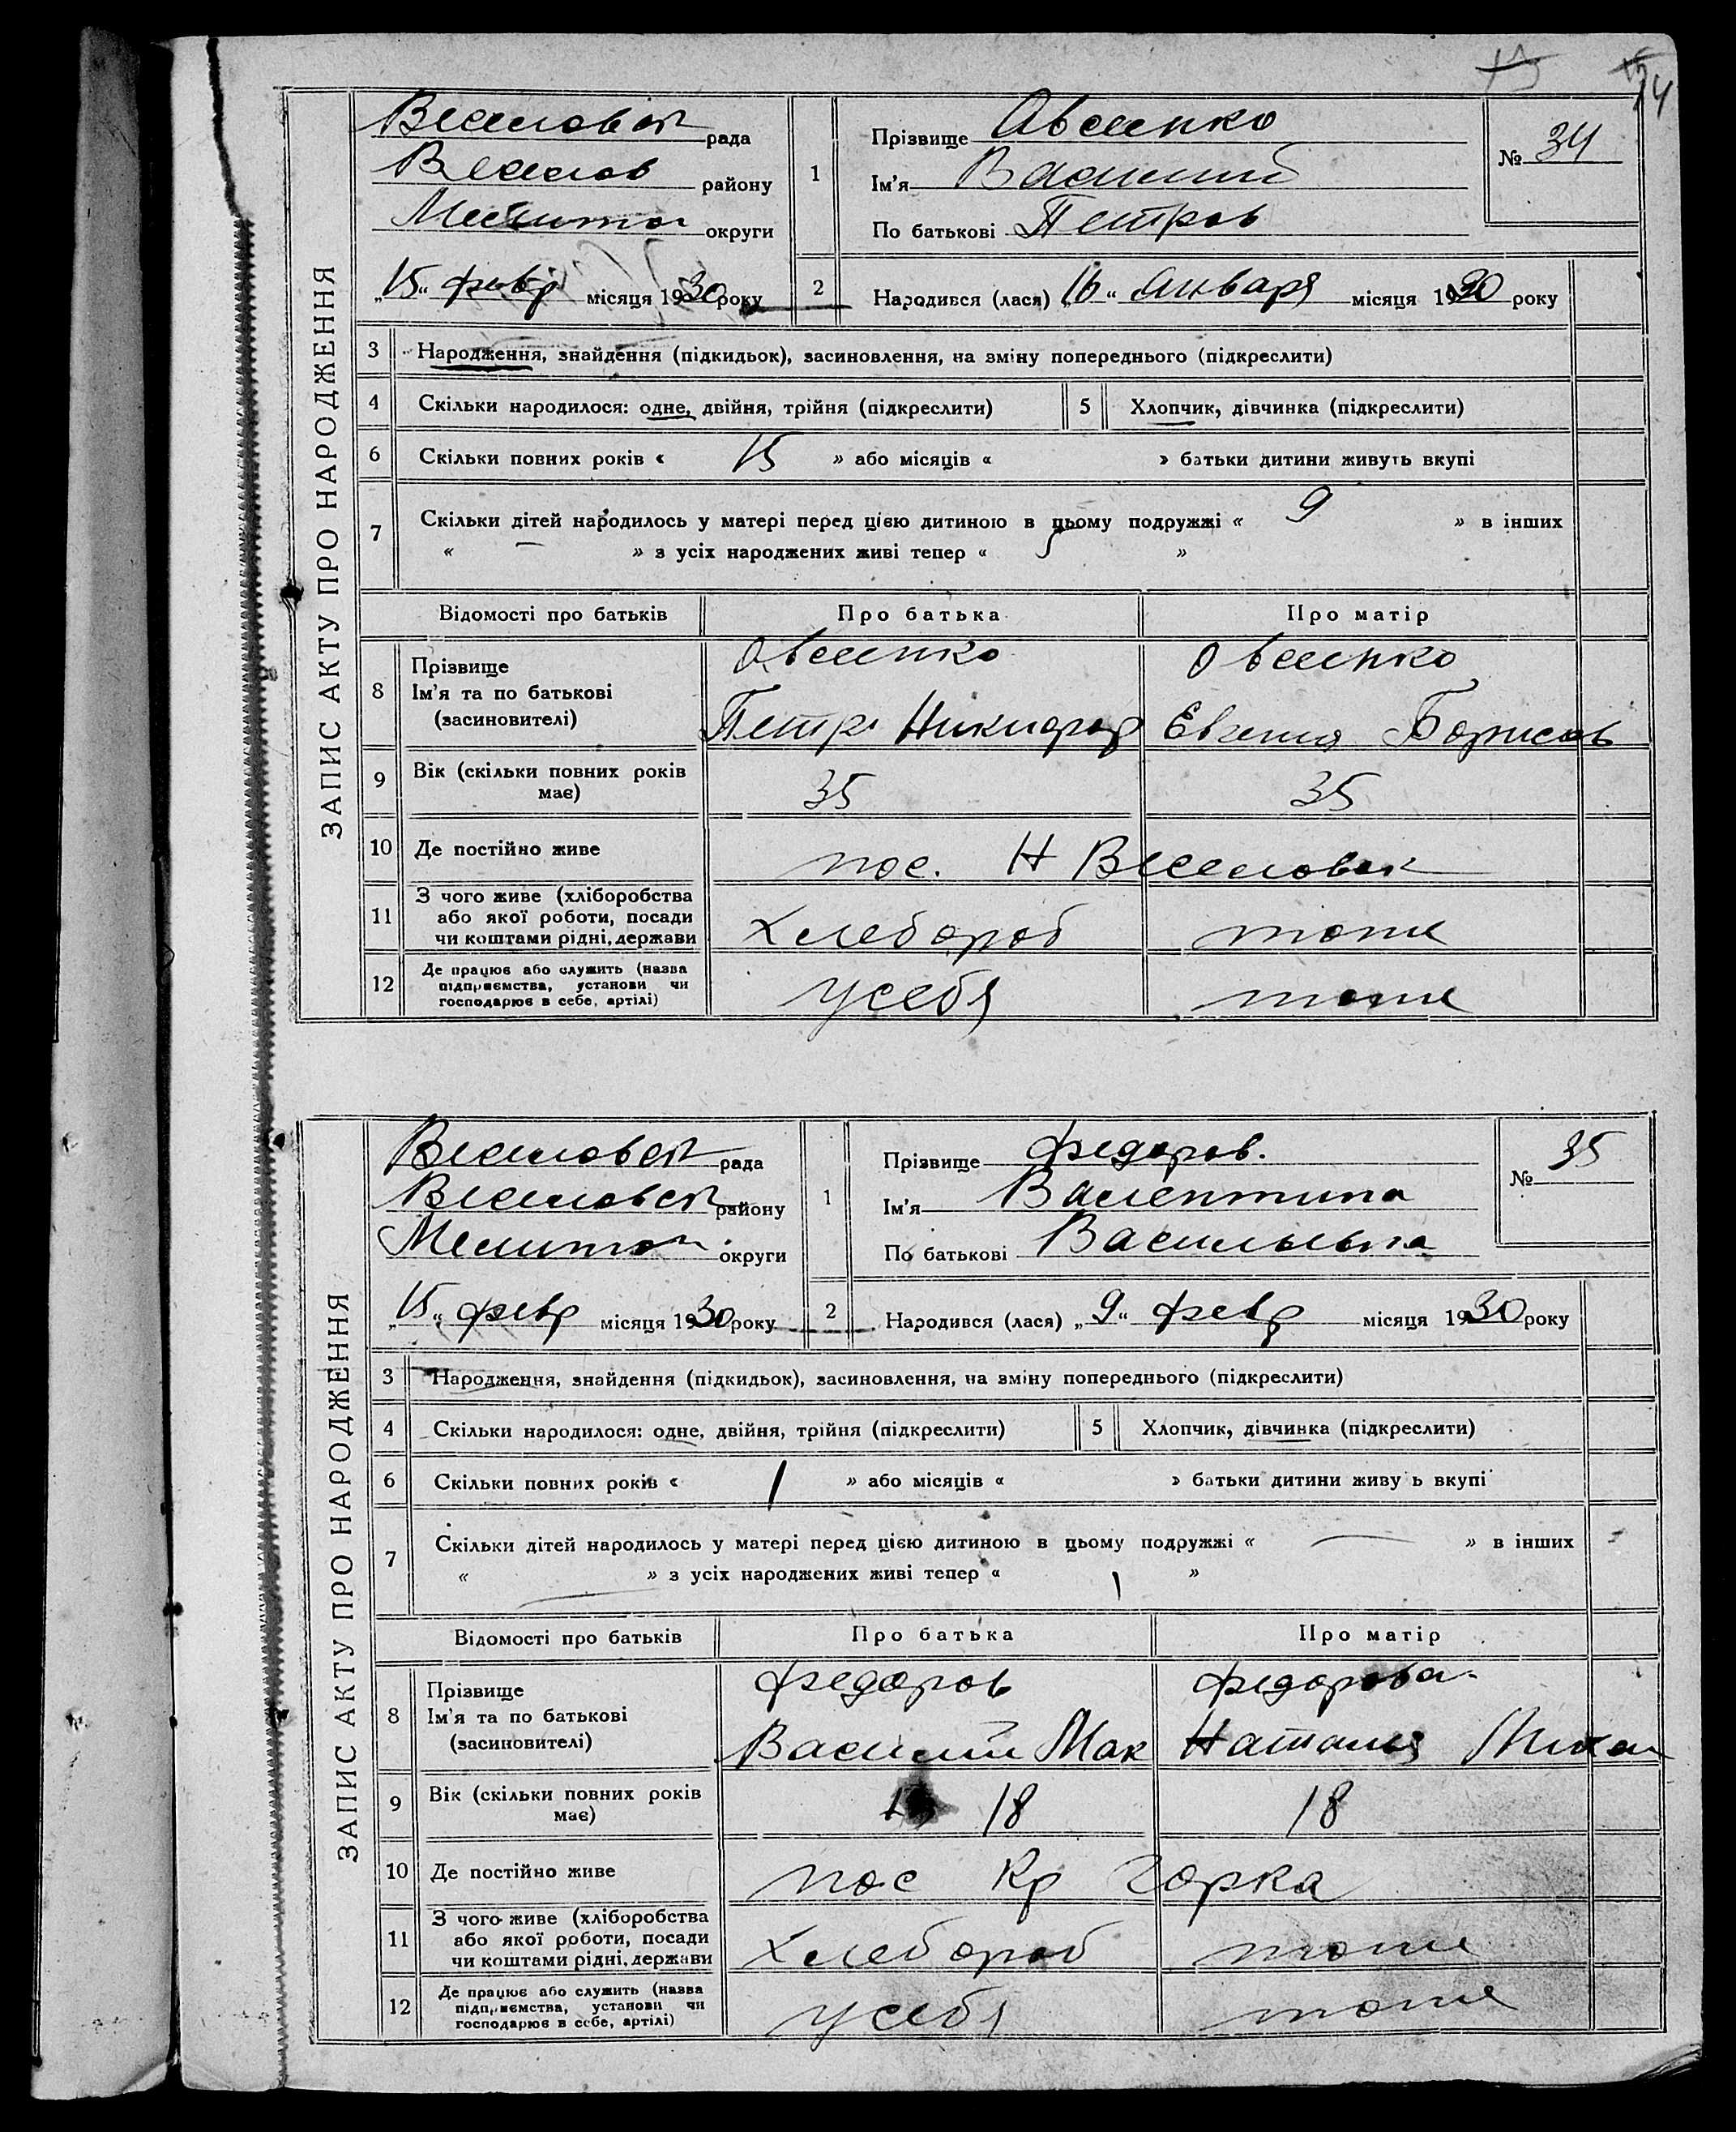 74
ЗАПИС АКТУ ПРО НАРОДЖЕННЯ
Веселовск рада
Веселов району
Мелитоп округи
„15“ февр місяця 1930 року
1
Прізвище Овсеенко
Ім'я Василий
По батькові Петров
№ 34
2
Народився (лася) „16“ января місяця 1930 року
3 Народження, знайдення (підкидьок), засиновлення, на зміну попереднього (підкреслити)
4 Скільки народилося: одне, двійня, трійня (підкреслити) 5 Хлопчик, дівчинка (підкреслити)
6 Скільки повних років « 15 » або місяців « » батьки дитини живуть вкупі
7 Скільки дітей народилось у матері перед цією дитиною в цьому подружжі « 9 » в інших
« — » з усіх народжених живі тепер « »
Відомості про батьків Про батька Про матір
8 Прізвище Овсеенко Овсеенко
Ім'я та по батькові
(засиновителі) Петр Никифор Евгения Борисов
9 Вік (скільки повних років має) 35 35
10 Де постійно живе пос. Н Веселовск
11 З чого живе (хліборобства
або якої роботи, посади хлебороб тоже
чи коштами рідні, держави
12 Де працює або служить (назва
підприємства, установи чи у себя тоже
господарює в себе, артілі)
ЗАПИС АКТУ ПРО НАРОДЖЕННЯ
Веселовск рада
Веселовск району
Мелитоп округи
„15“ февр місяця 1930 року
1
Прізвище Федоров.
Ім'я Валентина
По батькові Васильевна
№ 35
2
Народився (лася) „9“ февр місяця 1930 року
3 Народження, знайдення (підкидьок), засиновлення, на зміну попереднього (підкреслити)
4 Скільки народилося: одне, двійня, трійня (підкреслити) 5 Хлопчик, дівчинка (підкреслити)
6 Скільки повних років « 1 » або місяців « » батьки дитини живу ь вкупі
7 Скільки дітей народилось у матері перед цією дитиною в цьому подружжі « — » в інших
« — » з усіх народжених живі тепер « 1 »
Відомості про батьків Про батька Про матір
8 Прізвище Федоров Федорова
Ім'я та по батькові
(засиновителі) Василий Мак Наталия Михаи
9 Вік (скільки повних років має) 18 18
10 Де постійно живе пос Кр Горка
11 З чого живе (хліборобства
або якої роботи, посади хлебороб тоже
чи коштами рідні, держави
12 Де працює або служить (назва
підприємства, установи чи у себя тоже
господарює в себе, артілі)